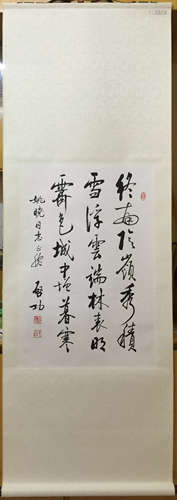 終南陰嶺秀積
雪浮雲端林表明
霽色城中增暮寒
姚曉同志正
啟功